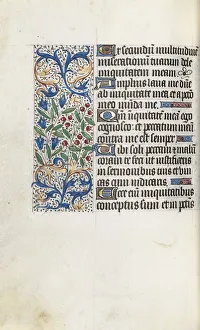 Et secundum multitudinem
miserationum tuarum dele
iniquitatem meam
Amplius laua me
ab iniquitate mea et a peccato
meo munda me
Quoniam iniquitatem meam ego
cognosco et peccatum meum
contra me est semper
Tibi soli peccaui et malum
coram te feci ut iustificeris
in sermonibus tuis et vin
cas cum iudicaris
Ecce enim iniquitatibus
conceptus sum et in peccatis